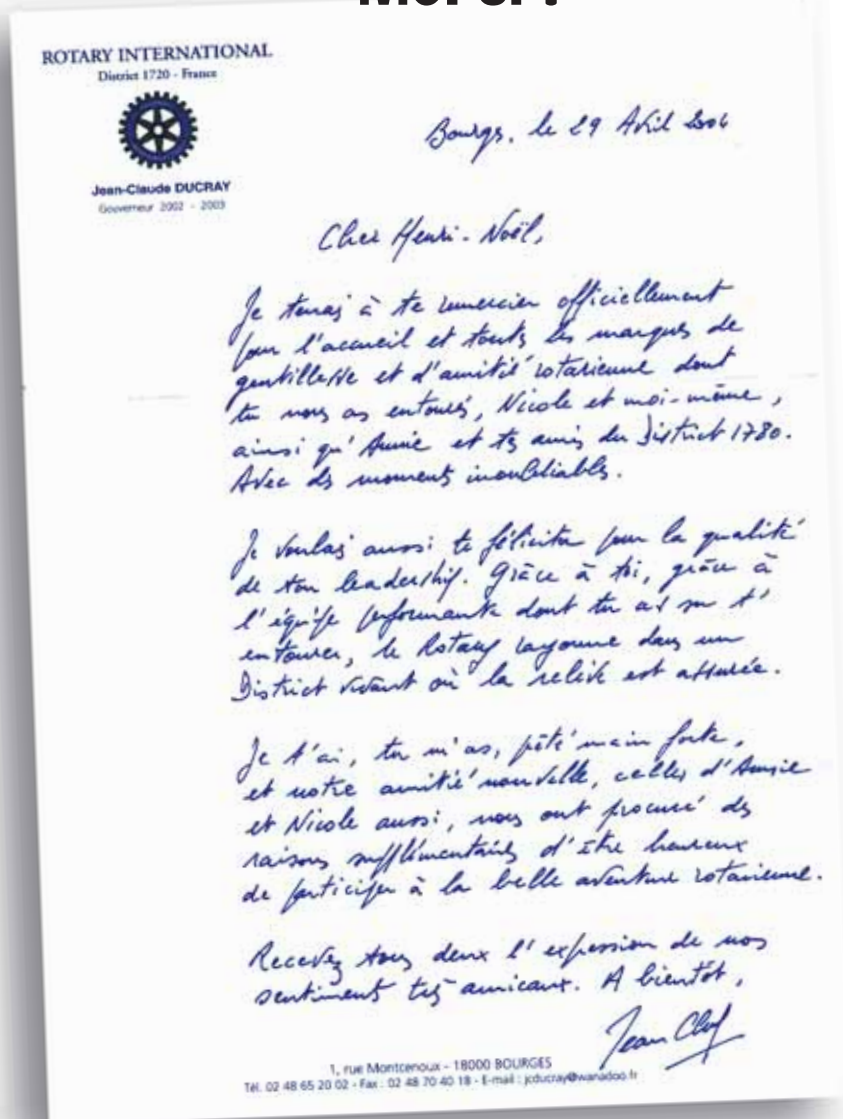 ROTARY INTERNATIONAL
District 1720 - France
Jean-Claude DUCRAY
Gouverneur 2002 - 2003
Bourges, le 29 Avril 2004
Cher Henri-Noël,
Je tenais à te remercier officiellement
pour l'accueil et toutes les marques de
gentillesse et d'amitié rotarienne dont
tu nous as entourés, Nicole et moi-même,
ainsi qu'Annie et tes amis du District 1780.
Avec des moments inoubliables.
Je voulais aussi te féliciter pour la qualité
de ton leadership. Grâce à toi, grâce à
l'équipe performante dont tu as su t'
entourer, le Rotary rayonne dans un
District vivant où la relève est assurée.
Je t'ai, tu m'as, prêté main forte,
et notre amitié nouvelle, celles d'Annie
et Nicole aussi, nous ont procuré des
raisons supplémentaires d'être heureux
de participer à la belle aventure rotarienne.
Recevez tous deux l'expression de nos
sentiments très amicaux. A bientôt,
Jean Claude
1, rue Montcenoux - 18000 BOURGES
Tél. 02 48 65 20 02 - Fax : 02 48 70 40 18 - E-mail : jcducray@wanadoo.fr